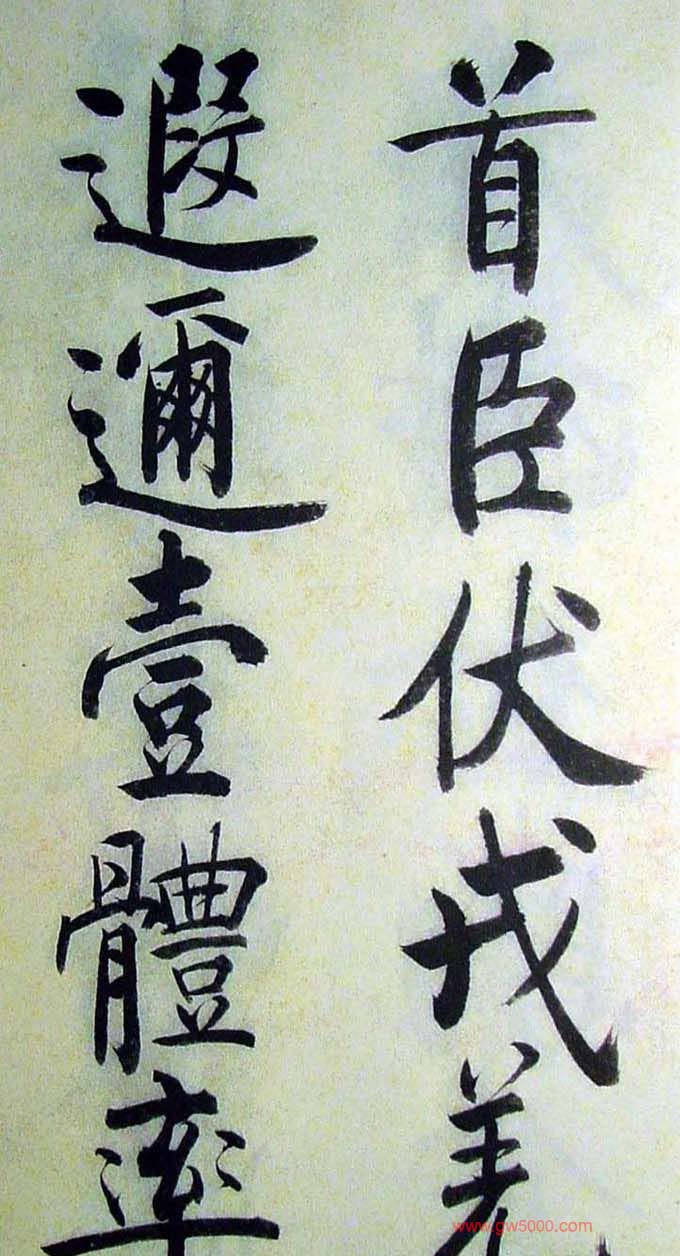 首臣伏戎羌
遐邇壹體率
www.gw5000.com